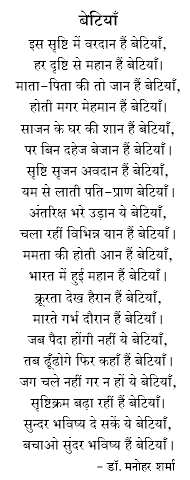 बेटियाँ
इस सृष्टि में वरदान हैं बेटियाँ,
हर दृष्टि से महान हैं बेटियाँ।
माता-पिता की तो जान हैं बेटियाँ,
होती मगर मेहमान हैं बेटियाँ।
साजन के घर की शान हैं बेटियाँ,
पर बिन दहेज बेजान हैं बेटियाँ।
सृष्टि सृजन अवदान हैं बेटियाँ,
यम से लाती पति-प्राण बेटियाँ।
अंतरिक्ष भरे उड़ान ये बेटियाँ,
चला रहीं विभिन्न यान हैं बेटियाँ।
ममता की होती आन हैं बेटियाँ,
भारत में हुई महान हैं बेटियाँ।
क्रूरता देख हैरान हैं बेटियाँ,
मारते गर्भ दौरान हैं बेटियाँ।
जब पैदा होंगी नहीं ये बेटियाँ,
तब ढूँढोगे फिर कहाँ हैं बेटियाँ।
जग चले नहीं गर न हों ये बेटियाँ,
सृष्टिक्रम बढ़ा रहीं हैं बेटियाँ।
सुन्दर भविष्य दे सकें ये बेटियाँ,
बचाओ सुंदर भविष्य हैं बेटियाँ।
- डॉ. मनोहर शर्मा